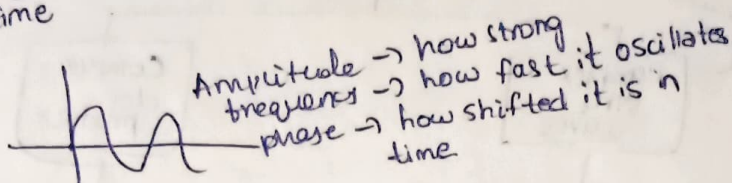 ime
Amplitude → how strong
frequency → how fast it oscillates
phase → how shifted it is in
time